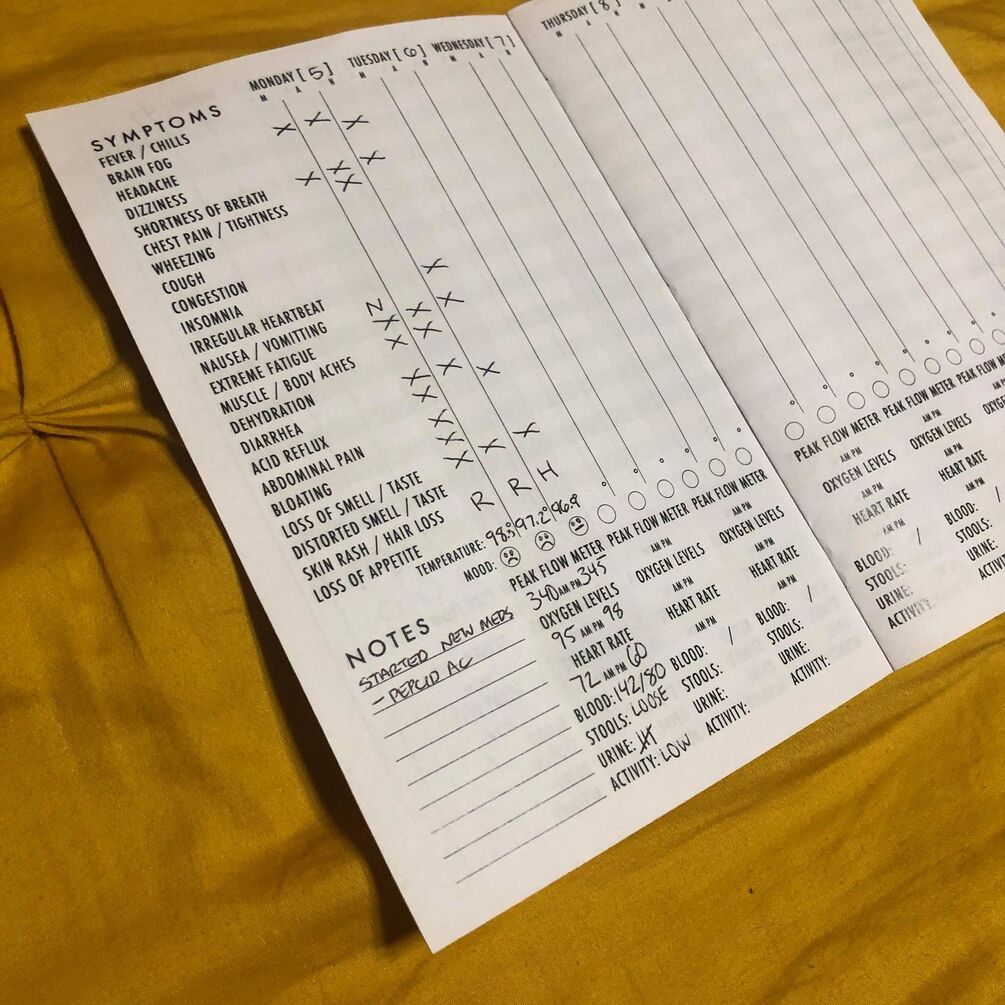 MONDAY [5] TUESDAY [6] WEDNESDAY [7] THURSDAY [8]
M A N M A N M A N M A N M
SYMPTOMS
FEVER / CHILLS X X X
BRAIN FOG
HEADACHE X X
DIZZINESS X X
SHORTNESS OF BREATH
CHEST PAIN / TIGHTNESS
WHEEZING
COUGH X
CONGESTION
INSOMNIA N X X
IRREGULAR HEARTBEAT X X
NAUSEA / VOMITTING X
EXTREME FATIGUE X X
MUSCLE / BODY ACHES X
DEHYDRATION X
DIARRHEA X
ACID REFLUX X X X
ABDOMINAL PAIN X
BLOATING
LOSS OF SMELL / TASTE
DISTORTED SMELL / TASTE
SKIN RASH / HAIR LOSS R R H
LOSS OF APPETITE
TEMPERATURE: 98.3° 97.2° 96.8°
MOOD:
NOTES
STARTED NEW MEDS
- PEPCID AC
PEAK FLOW METER PEAK FLOW METER PEAK FLOW METER
340 AM PM 345 AM PM AM PM
OXYGEN LEVELS OXYGEN LEVELS OXYGEN LEVELS
95 AM PM 98 AM PM AM PM
HEART RATE HEART RATE HEART RATE
72 AM PM 60 AM PM AM PM
BLOOD: 142/80 BLOOD: / BLOOD: /
STOOLS: LOOSE STOOLS: STOOLS:
URINE: URINE: URINE:
ACTIVITY: LOW ACTIVITY: ACTIVITY:
PEAK FLOW METER PEAK FLOW METER PEAK FLOW
AM PM AM PM
OXYGEN LEVELS OXYGEN LEVELS
AM PM AM PM
HEART RATE HEART RATE
AM PM
BLOOD: / BLOOD:
STOOLS: STOOLS:
URINE: URINE:
ACTIVITY: